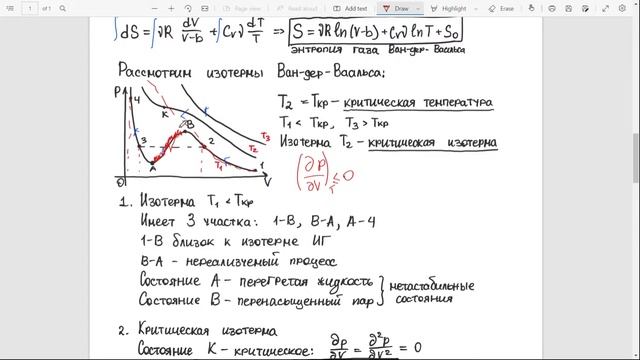 1 of 1
Draw
∫dS = ∫νR dV/(V-b) + ∫Cᵥν dT/T ⇒ S = νR ln(V-b) + Cᵥν lnT + S₀
энтропия газа Ван-дер-Ваальса
Рассмотрим изотермы Ван-дер-Ваальса:
P
4
K
B
3
2
A
T₁
T₂
T₃
1
0
V
T₂ = Tкр - критическая температура
T₁ < Tкр, T₃ > Tкр
Изотерма T₂ - критическая изотерма
(∂p/∂V)_T ≤ 0
1. Изотерма T₁ < Tкр
Имеет 3 участка: 1-B, B-A, A-4
1-B близок к изотерме ИГ
B-A - нереализуемый процесс
Состояние A - перегретая жидкость
Состояние B - перенасыщенный пар
метастабильные
состояния
2. Критическая изотерма
Состояние K - критическое: ∂p/∂V = ∂²p/∂V² = 0